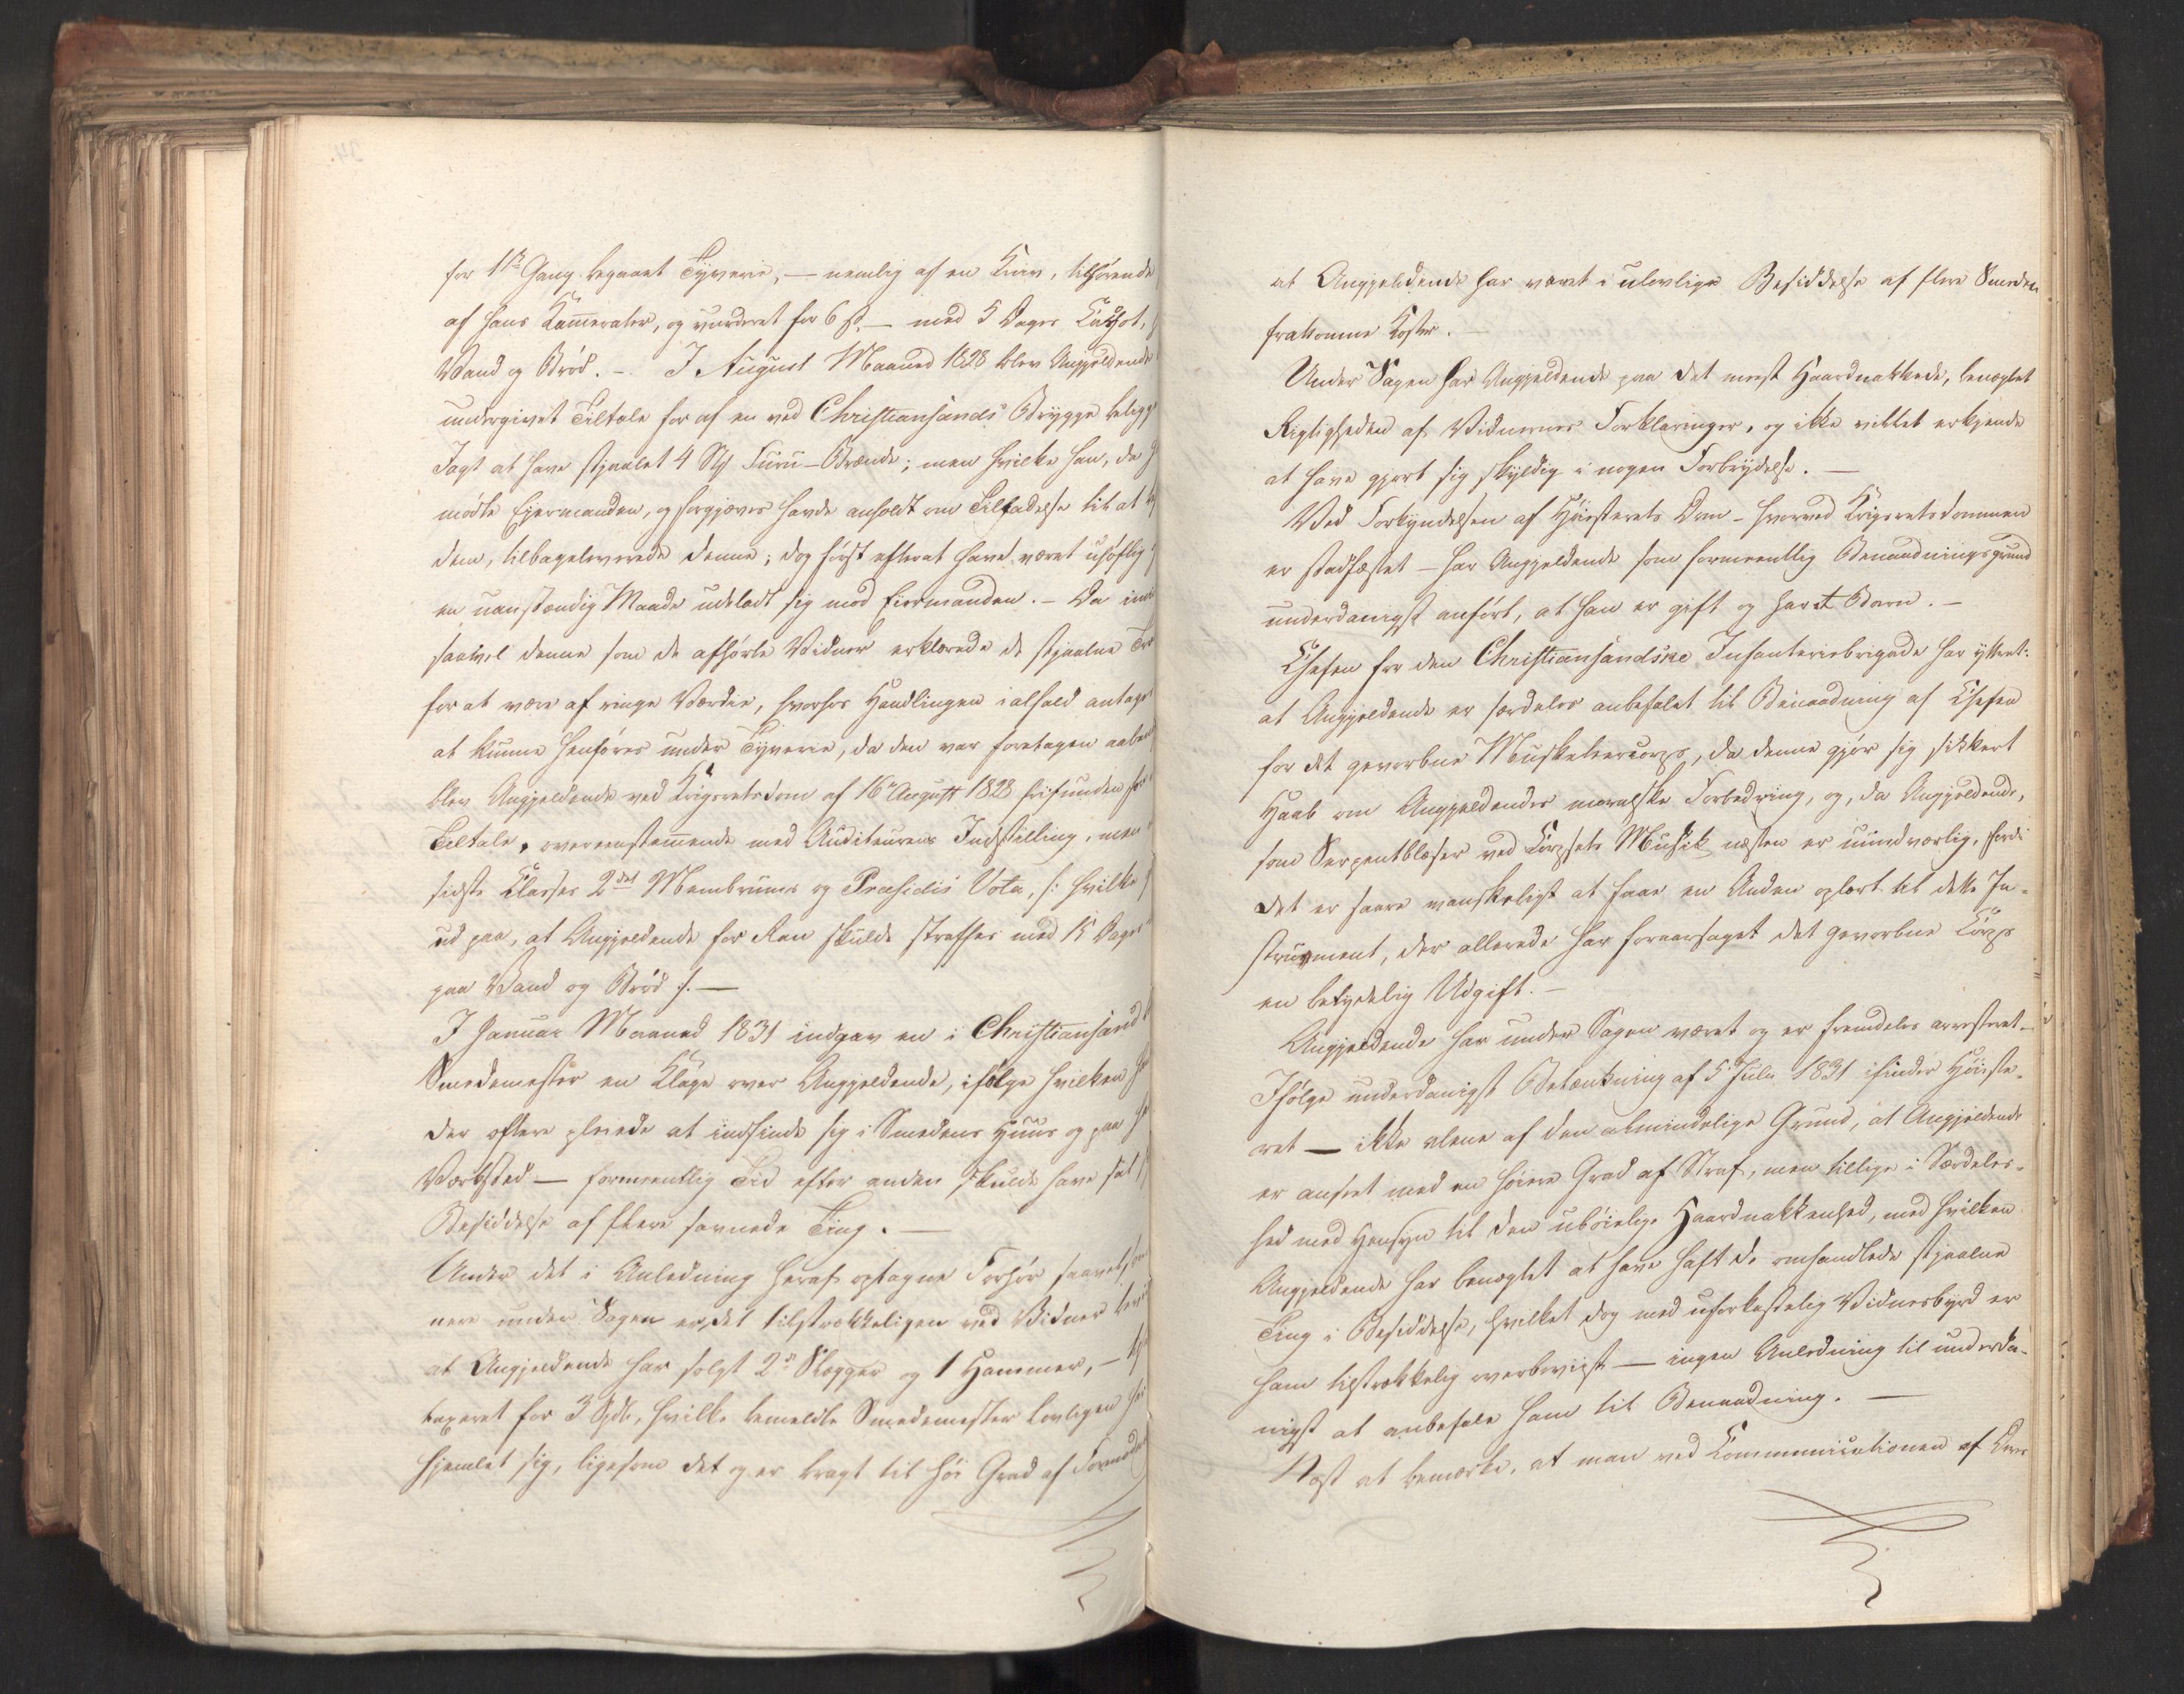 for 1ste Gang begaaet Tyverie, — nemlig af en Kniv, tilhørende
af hans Kammerater, og vurderet for 6 ß. — med 5 Dages Cachot,
Vand og Brød. — I August Maaned 1828 blev Angjeldende
undergivet Tiltale for af en ved Christiansands Brygge beligg
Jagt at have stjaalet 4 Stk Furu-Brænde; men hvilke han, da
mødte Eiermanden, og forgjæves havde anholdt om Tilladelse til at
dem, tilbageleverede denne; dog først efterat have været uhøflig
en uanstændig Maade udladt sig mod Eiermanden. — Da
saavel denne som de afhørte Vidner erklærede de stjaalne
for at være af ringe Værdie, hvorfor Handlingen ialfald antages
at kunne henføres under Tyverie, da den var foretagen aaben
blev Angjeldende ved Krigsretsdom af 16de August 1828 frifunden for
Tiltale, overeenstemmende med Auditeurens Indstilling, men
sidste Classes 2det Membrums og Præsidis Vota, /: hvilke
ud paa, at Angjeldende for Ran skulde straffes med 15 Dages
paa Vand og Brød :/. —
I Januar Maaned 1831 indgav en i Christiansand
Smedemester en Klage over Angjeldende, ifølge hvilken
der oftere pleiede at indfinde sig i Smedens Huus og paa
Værksted — formeentlig Tid efter anden skulde have sat
Besiddelse af flere savnede Ting. —
Under det i Anledning heraf optagne Forhør saavelsom
nere under Sagen er det tilstrækkeligen ved Vidner
at Angjeldende har solgt 2de Slægger og 1 Hammer, —
taxeret for 3 Spdlr, hvilke bemeldte Smedemester lovligen
hjemlet sig, ligesom det og er bragt til høi Grad af Formod
at Angjeldende har været i ulovlige Besiddelse af flere Smeden
frakomne Koster. —
Under Sagen har Angjeldende paa det meest Haardnakkede, benægtet
Rigtigheden af Vidnernes Forklaringer, og ikke villet erkjende
at have gjort sig skyldig i nogen Forbrydelse. —
Ved Forkyndelsen af Høiesterets Dom — hvorved Krigsretsdommen
er stadfæstet — har Angjeldende som formeentlig Benaadningsgrund
underdanigst anført, at han er gift og har et Barn. —
Chefen for den Christiansandske Infanteriebrigade har yttret:
at Angjeldende er særdeles anbefalet til Benaadning af Chefen
for det gevorbne Musketeercorps, da denne gjør sig sikkert
Haab om Angjeldendes moralske Forbedring, og, da Angjeldende,
som Serpentblæser ved Corpsets Musik næsten er uundværlig, fordi
det er saare vanskeligt at faae en Anden oplært til dette In-
strument, der allerede har foraarsaget det gevorbne Corps
en betydelig Udgift. —
Angjeldende har under Sagen været og er fremdeles arresteret. —
Ifølge underdanigst Betænkning af 5te Julii 1831 ifinder Høieste-
ret — ikke alene af den almindelige Grund, at Angjeldende
er anseet med en høiere Grad af Straf, men tillige i Særdeles-
hed med Hensyn til den ubøielige Haardnakkenhed, med hvilken
Angjeldende har benægtet at have haft de omhandlede stjaalne
Ting i Besiddelse, hvilket dog med uforkastelig Vidnesbyrd er
ham tilstrækkelig overbeviist — ingen Anledning til underda-
nigst at anbefale ham til Benaadning. —
Næst at bemærke, at man ved Communicationen af Dom